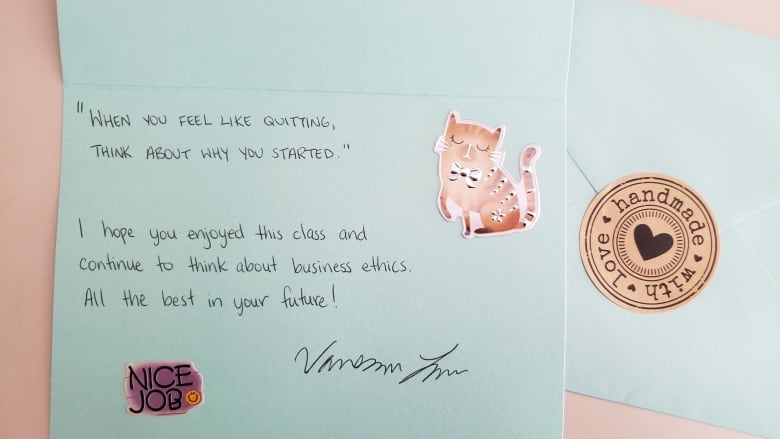 "WHEN YOU FEEL LIKE QUITTING,
THINK ABOUT WHY YOU STARTED."
I hope you enjoyed this class and
continue to think about business ethics.
All the best in your future!
Vanessa
NICE
JOB
handmade
with
love